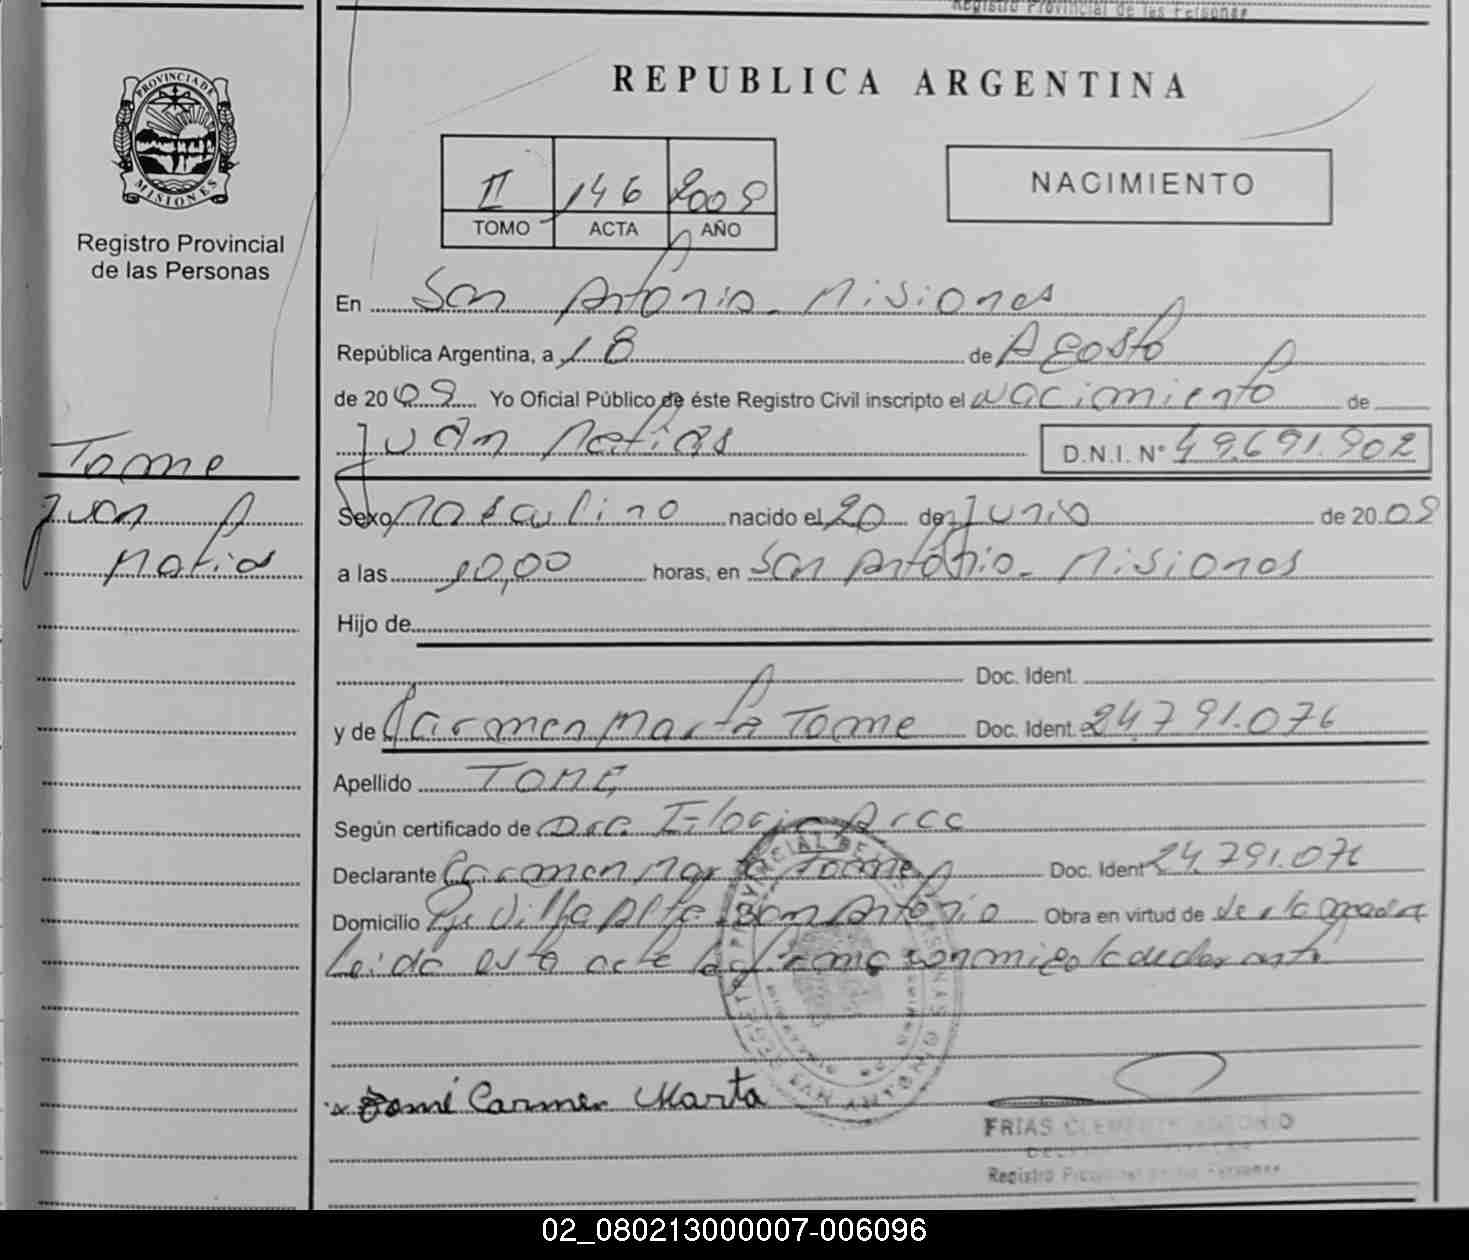 Registro Provincial de las Personas
PROVINCIA DE
MISIONES
Registro Provincial
de las Personas
REPUBLICA ARGENTINA
II 146 2009
TOMO ACTA AÑO
NACIMIENTO
En San Antonio - Misiones
República Argentina, a 18 de Agosto
de 2009 Yo Oficial Público de éste Registro Civil inscripto el nacimiento de
Juan Matias D.N.I. N° 49.691.902
Tome
Juan
Matias
Sexo Masculino nacido el 20 de Junio de 2009
a las 10,00 horas, en San Antonio - Misiones
Hijo de
Doc. Ident.
y de Carmen Marta Tome Doc. Ident. 24.791.076
Apellido TOME
Según certificado de Arce
Declarante Carmen Marta Tome Doc. Ident 24.791.076
Domicilio Villa Alta San Antonio Obra en virtud de
Leida esta acta la firma conmigo la declarante
x Tomé Carmen Marta
FRIAS CLEMENTE ANTONIO
Registro Provincial de las Personas
02_080213000007-006096